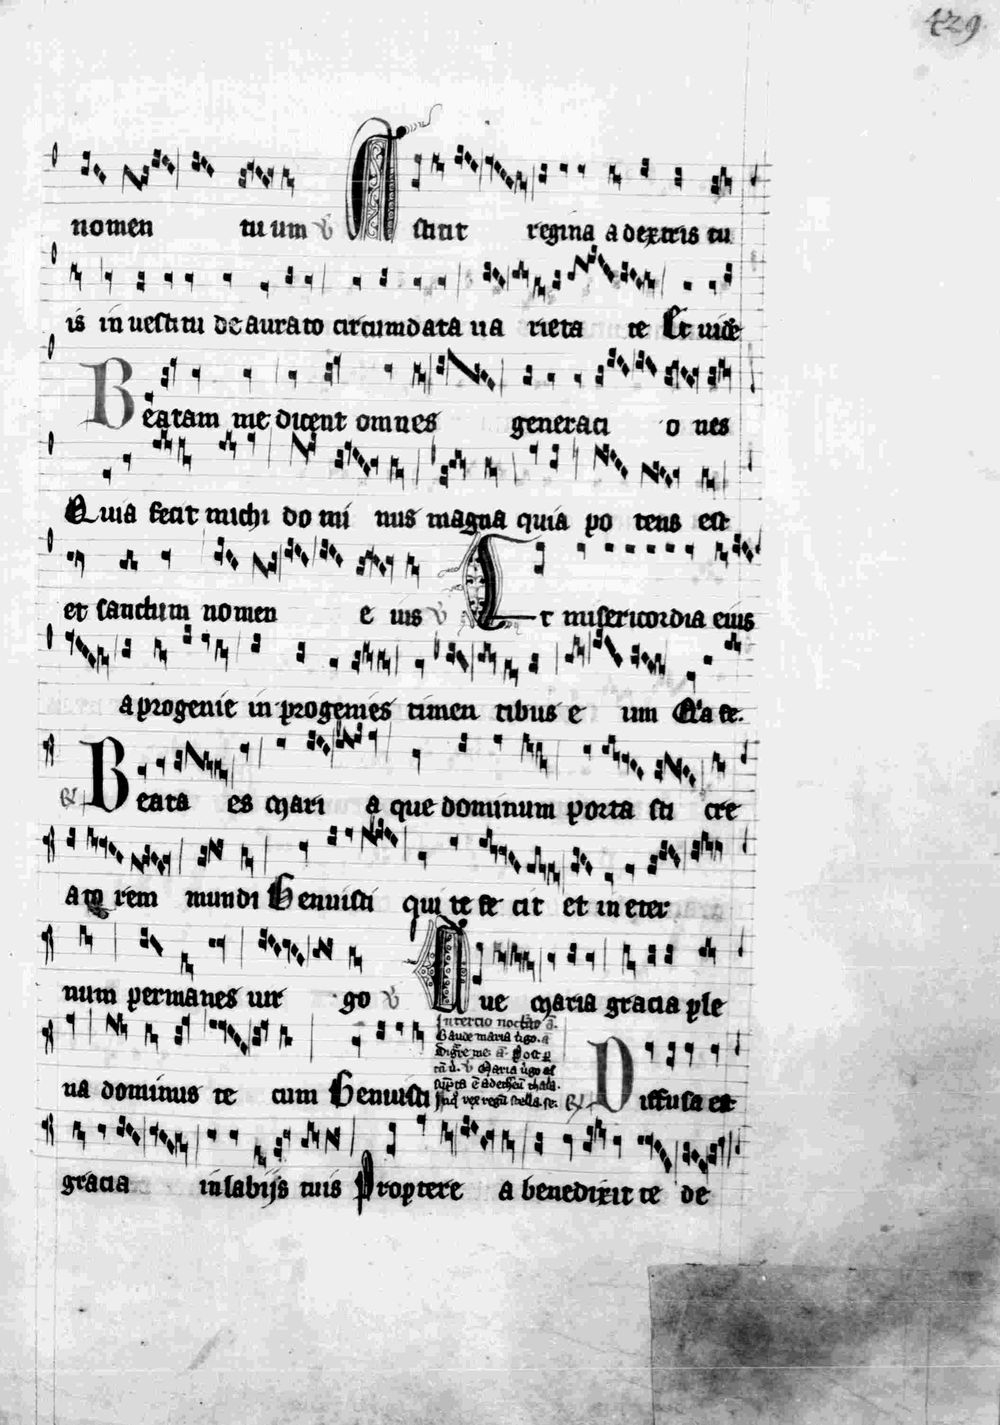 429
nomen tuum V Astitit regina a dextris tu
is in uestitu deaurato circumdata ua rieta te Et uide
Beatam me dicent omnes generaci o nes
Quia fecit michi do mi nus magna quia po tens est
et sanctum nomen e ius V Et misericordia eius
a progenie in progenies timen tibus e um Quia fe.
R Beata es mari a que dominum porta sti cre
ato rem mundi Genuisti qui te fe cit et in eter
num permanes uir go V Aue maria gracia ple
In tercio noct̄o ā.
Gaude maria ūgo. a
na dominus te cum Genuisti
R Diffusa est
gracia in labijs tuis Proptere a benedixit te de